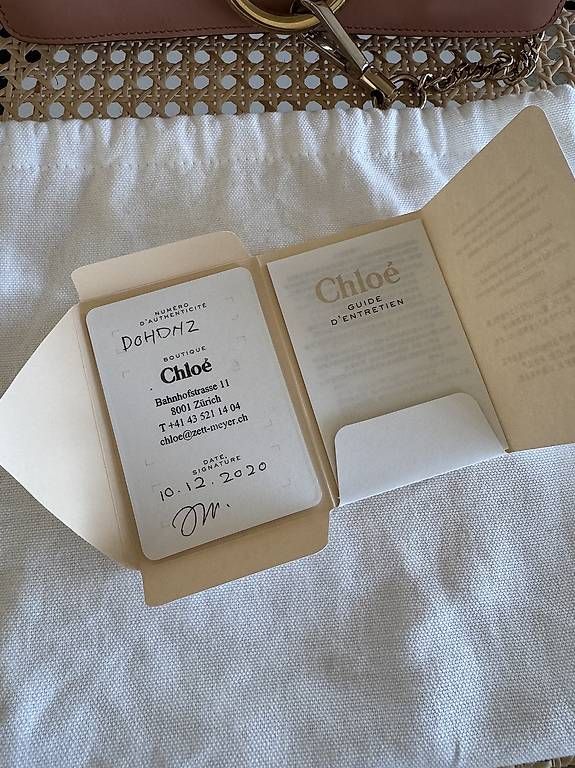 NUMÉRO
D'AUTHENTICITÉ
DOHDNZ
BOUTIQUE
Chloé
Bahnhofstrasse 11
8001 Zürich
T +41 43 521 14 04
chloe@zett-meyer.ch
DATE,
SIGNATURE
10.12.2020
Chloé
GUIDE
D'ENTRETIEN